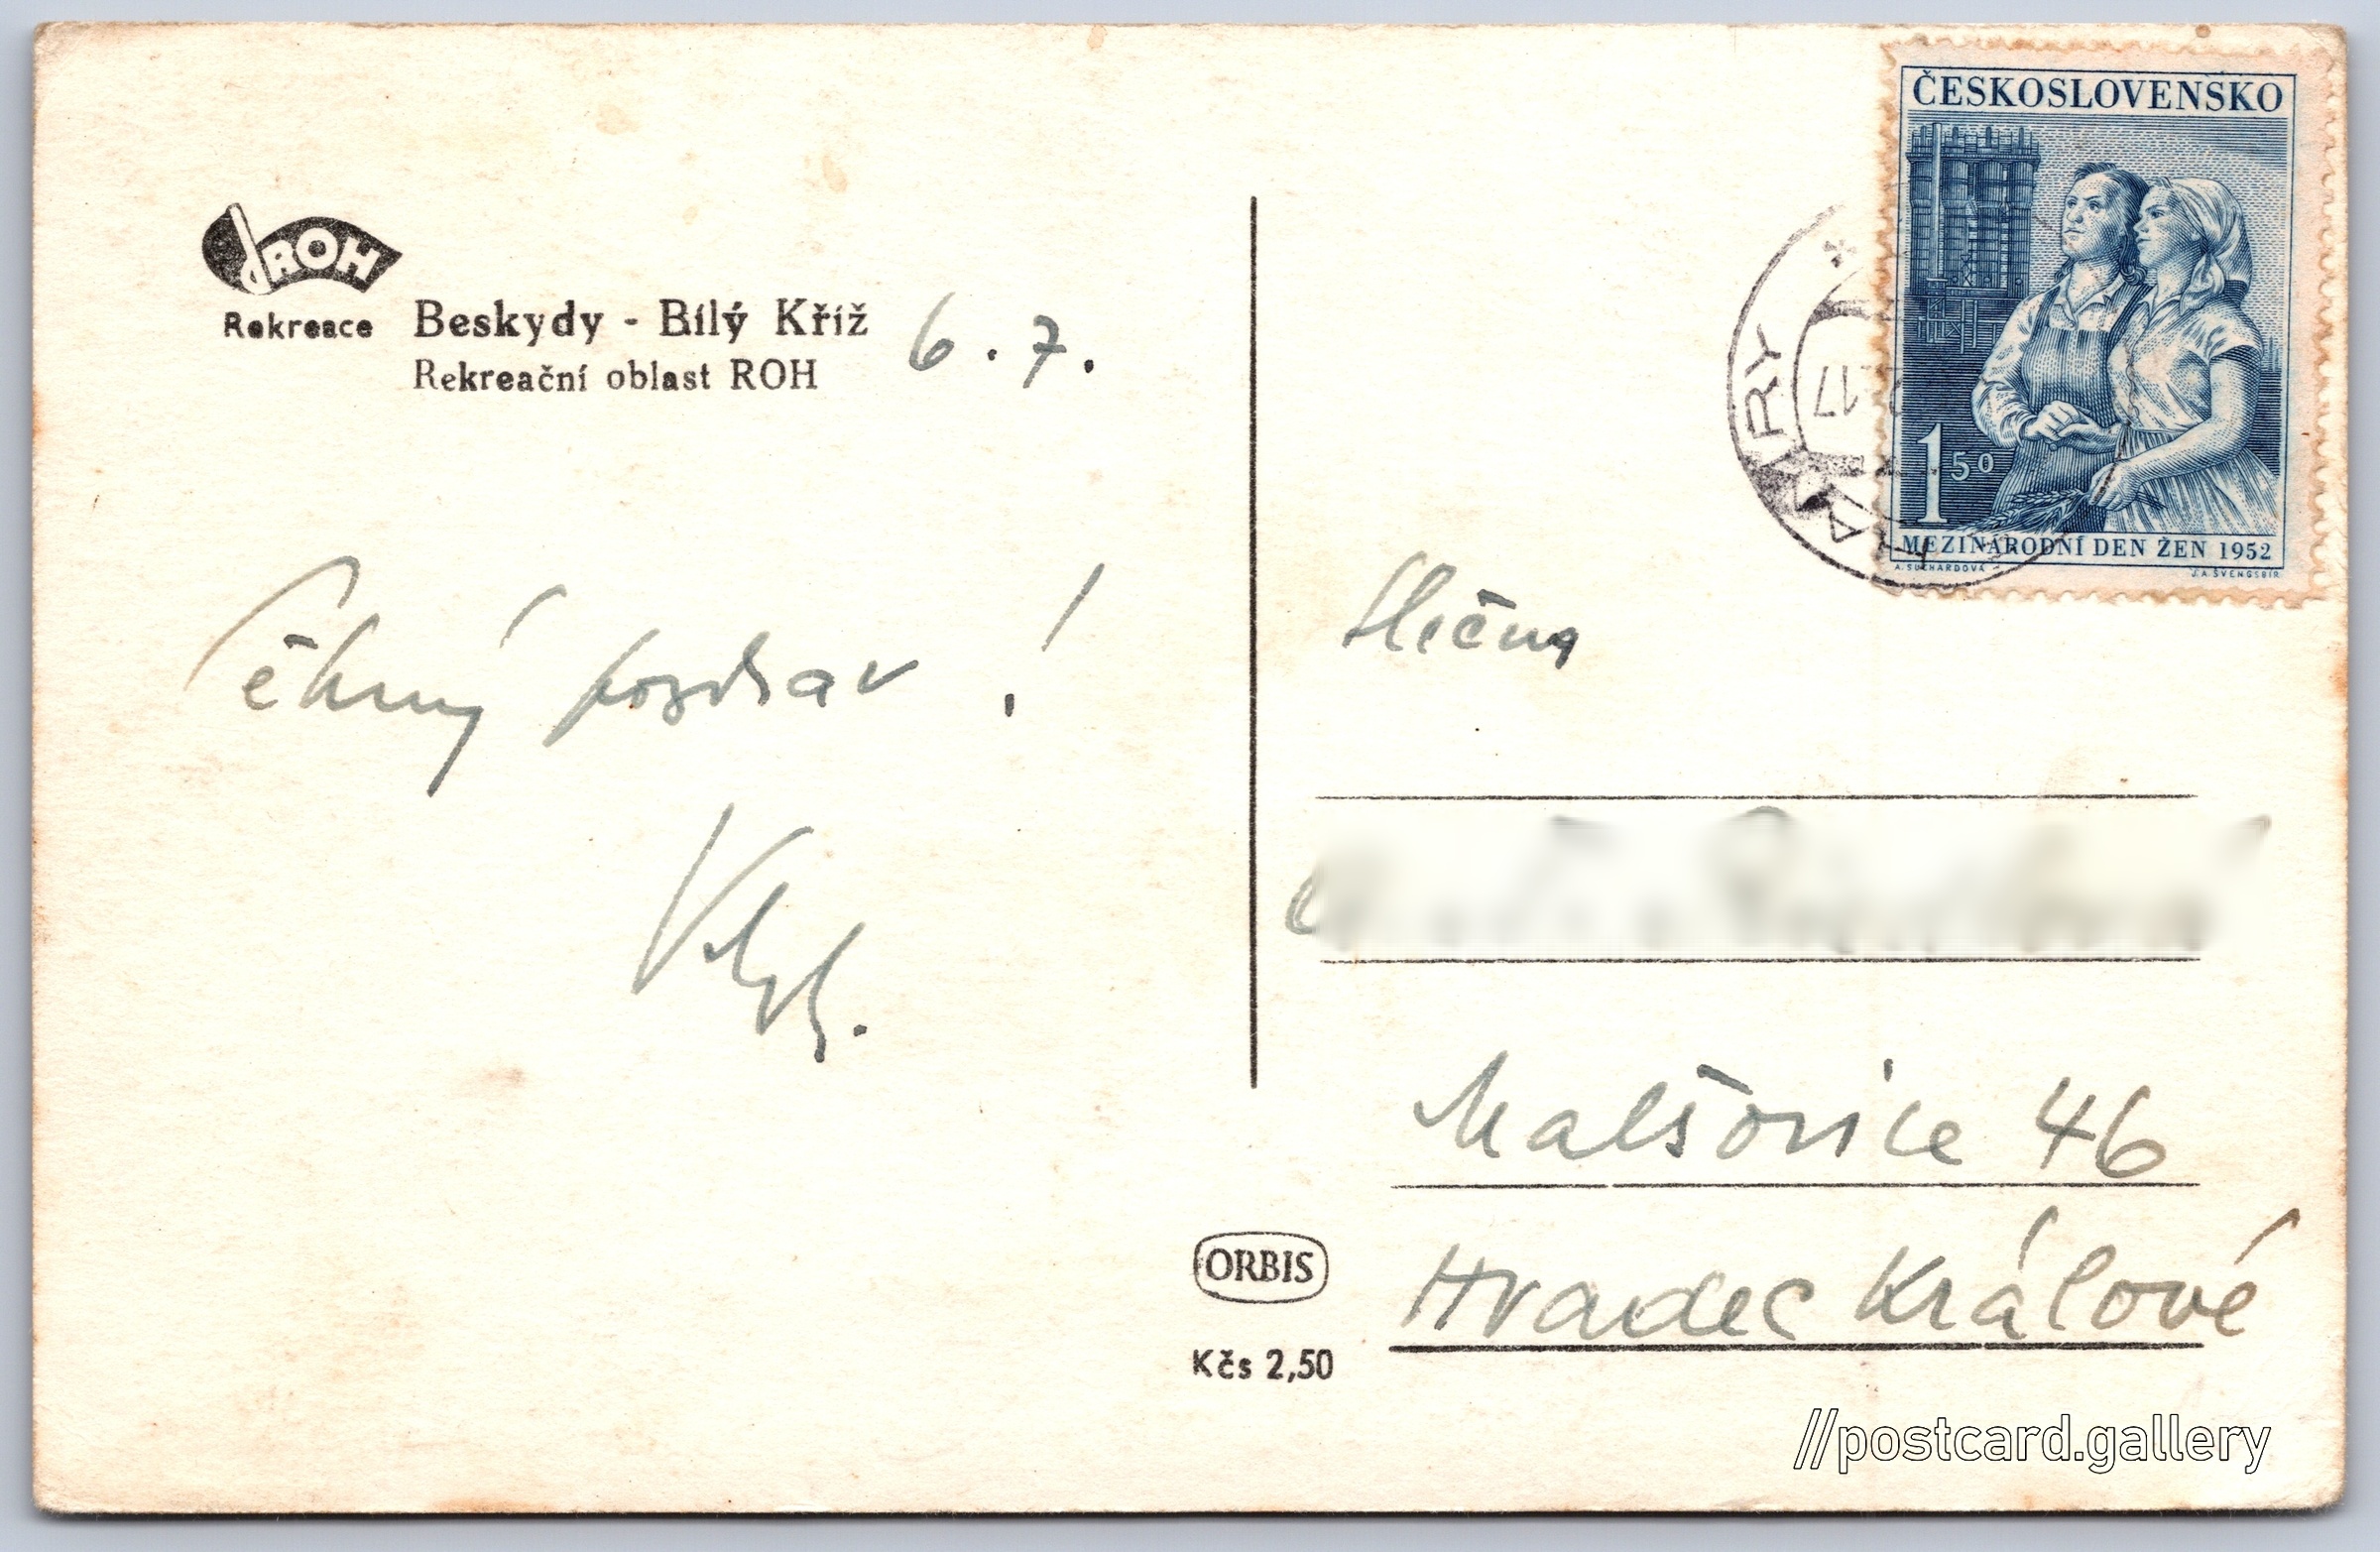 ROH
Rekreace
Beskydy - Bílý Kříž
Rekreační oblast ROH
6. 7.
pozdrav !
ČESKOSLOVENSKO
1 50
MEZINÁRODNÍ DEN ŽEN 1952
A. SUCHARDOVÁ J. A. ŠVENGSBÍR
17
Slečna
Malšovice 46
Hradec Králové
ORBIS
Kčs 2,50
//postcard.gallery